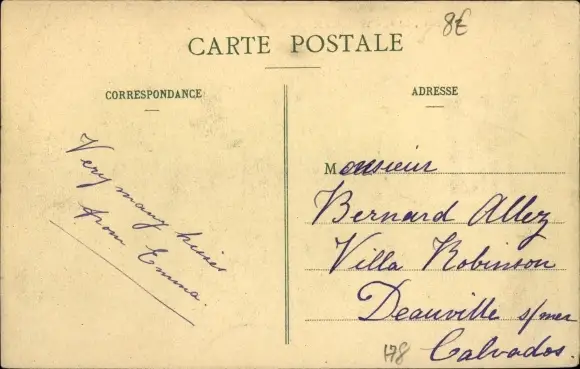 8€
CARTE POSTALE
CORRESPONDANCE
Very many kisses
from Emma.
ADRESSE
Monsieur
Bernard Allez
Villa Robinson
Deauville s/mer
Calvados.
178